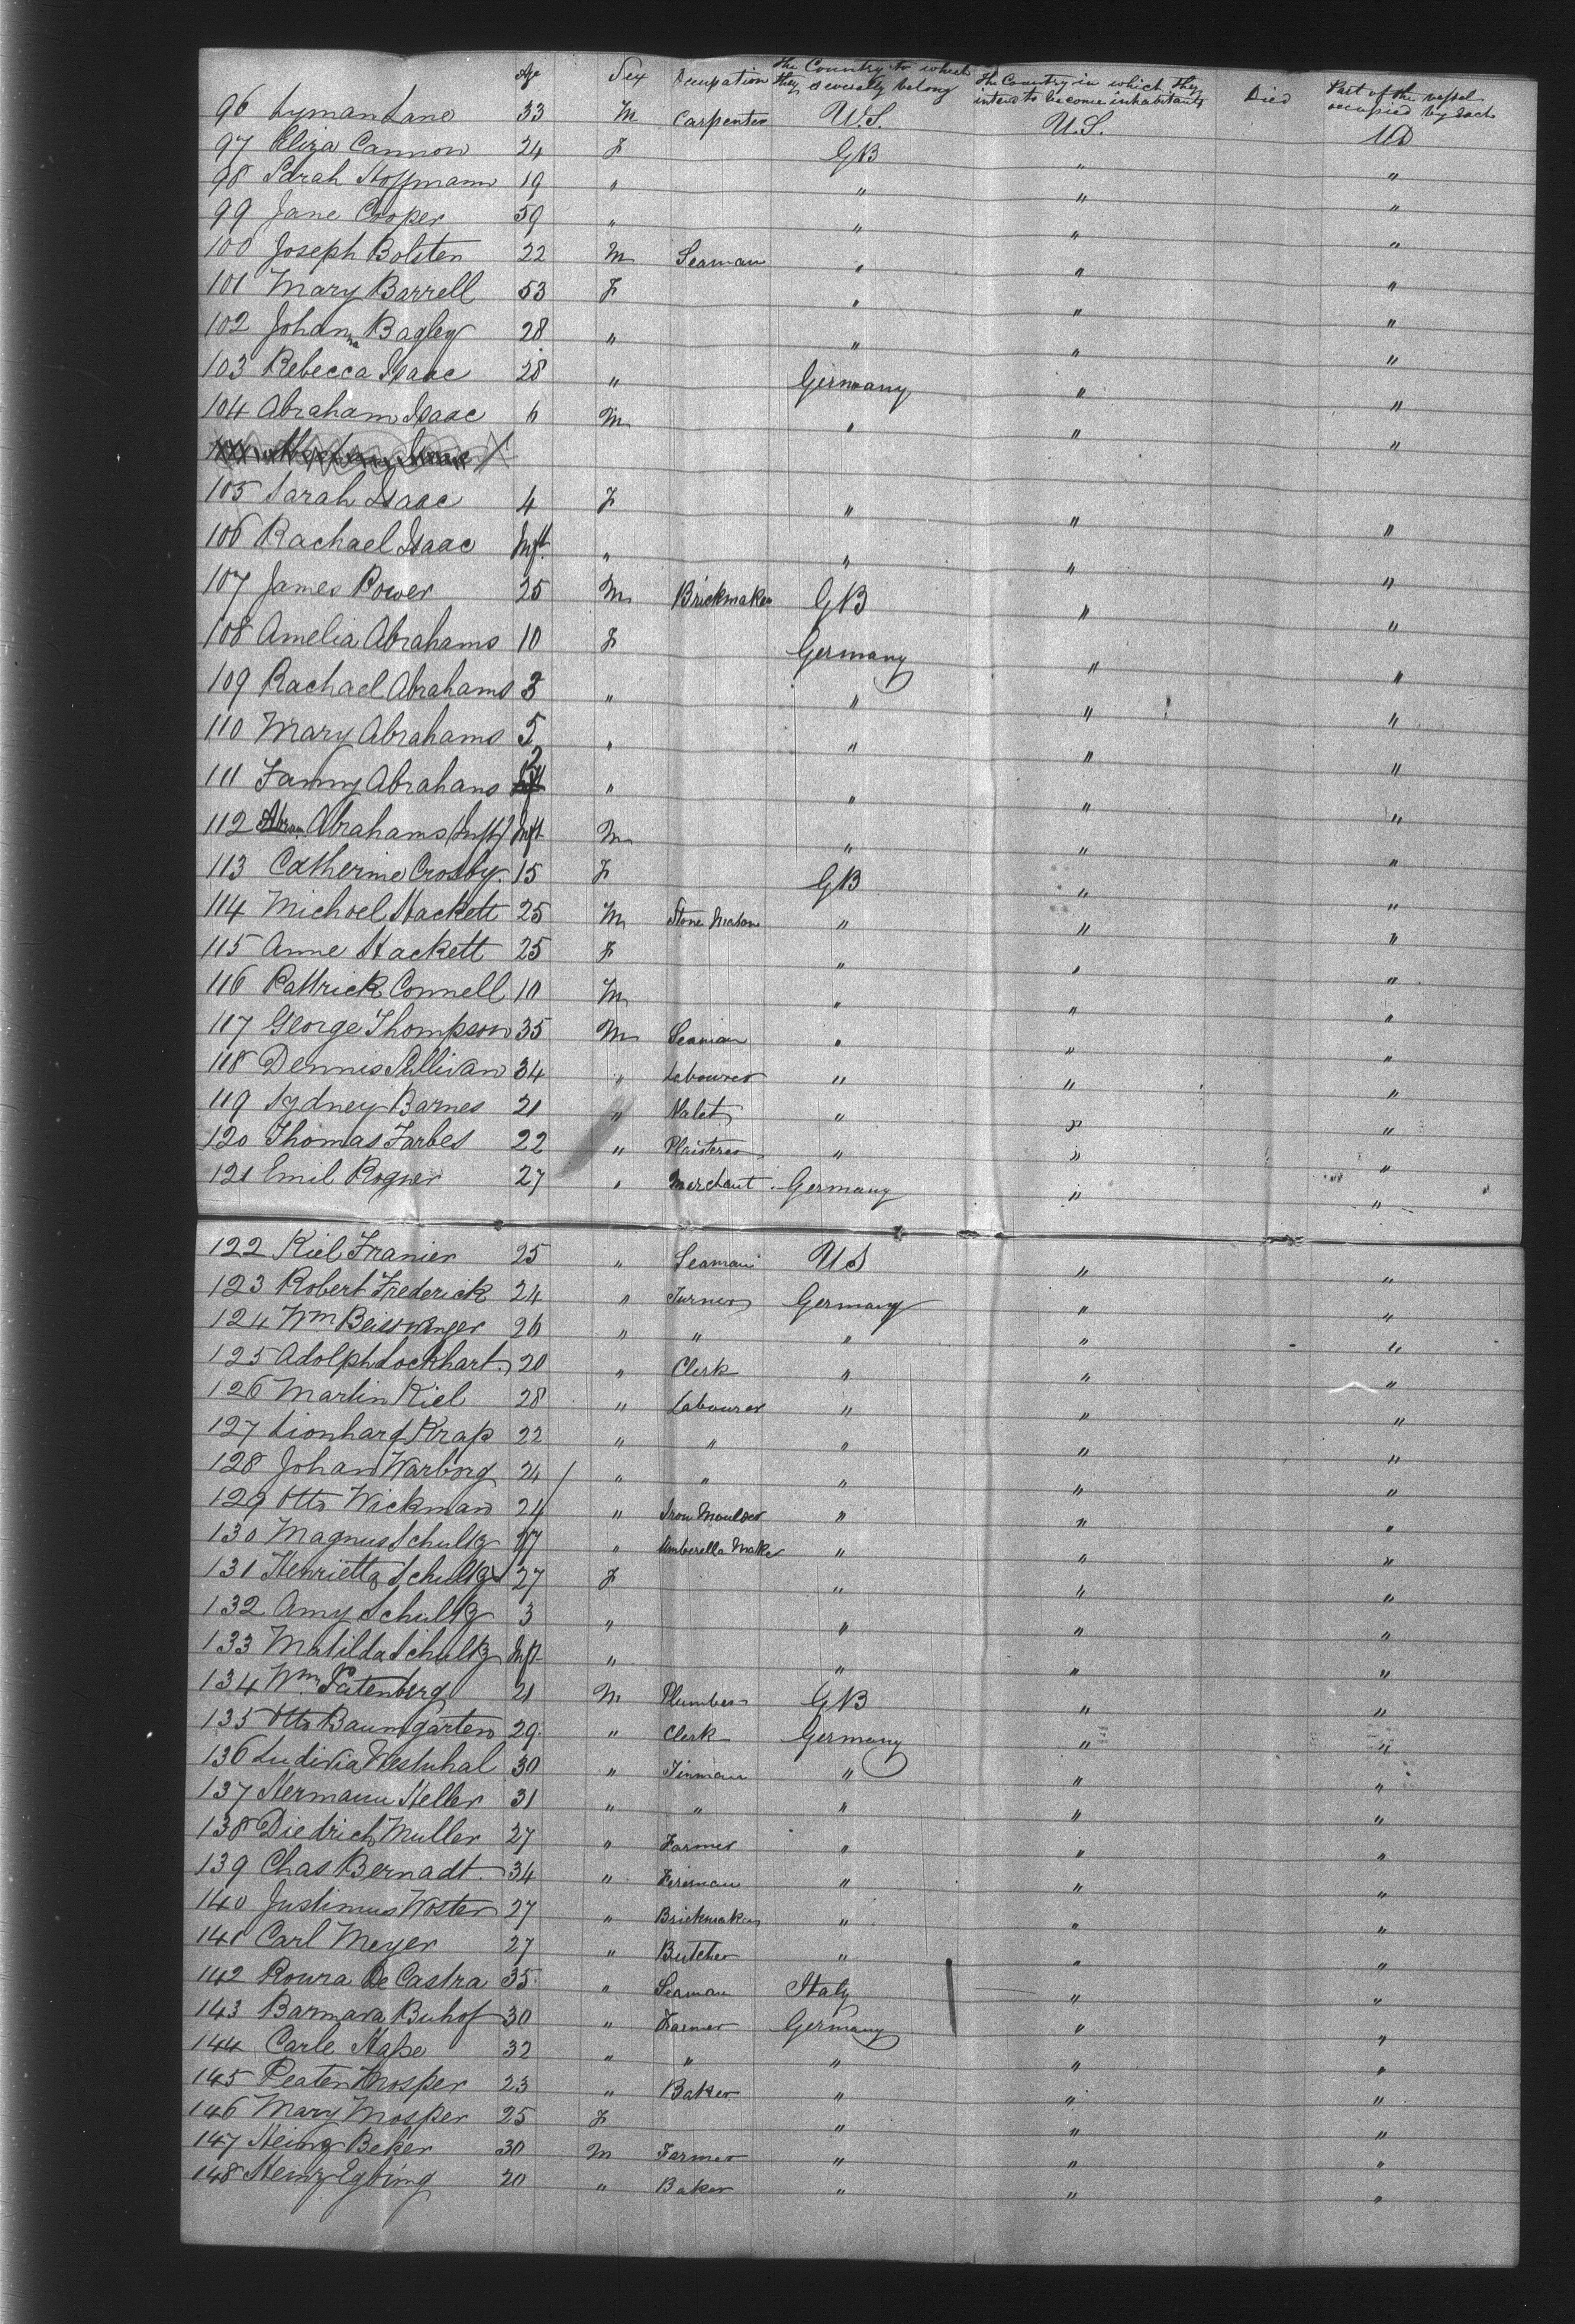 Age Sex Occupation The Country to which they severally belong The Country in which they intend to become inhabitants Died Part of the vessel occupied by each
96 Lyman Lane 33 M Carpenter U.S. U.S. UD
97 Eliza Cannon 24 F GB " "
98 Sarah Hoffmann 19 " " " "
99 Jane Cooper 59 " " " "
100 Joseph Bolsten 22 M Seaman " " "
101 Mary Barrell 53 F " " "
102 Johanna Bagley 28 " " " "
103 Rebecca Isaac 28 " Germany " "
104 Abraham Isaac 6 M " " "
105 Sarah Isaac 4 F " " "
106 Rachael Isaac Inft. " " " "
107 James Power 25 M Brickmaker GB " "
108 Amelia Abrahams 10 F Germany " "
109 Rachael Abrahams 3 " " " "
110 Mary Abrahams 5 " " " "
111 Fanny Abrahams 2 " " " "
112 Abram Abrahams (Inft) Inft M " " "
113 Catherine Crosby. 15 F GB " "
114 Michael Hackett 25 M Stone Mason " " "
115 Anne Hackett 25 F " " "
116 Pattrick Connell 10 M " " "
117 George Thompson 35 M Seaman " " "
118 Dennis Sullivan 34 " Labourer " " "
119 Sydney Barnes 21 " Valet " " "
120 Thomas Farbes 22 " Plaisterer " " "
121 Emil Rogner 27 " Merchant Germany " "
122 Kiel Franier 25 " Seaman US " "
123 Robert Frederick 24 " Turner Germany " "
124 Wm Beisswanger 26 " " " " "
125 Adolph Lockhart 20 " Clerk " " "
126 Martin Kiel 28 " Labourer " " "
127 Lionhard Krap 22 " " " " "
128 Johan Warborg 24 " " " " "
129 Otto Wickman 24 " Iron Moulder " " "
130 Magnus Schultz 27 " Umberella Maker " " "
131 Henrietta Schultz 27 F " " "
132 Amy Schultz 3 " " " "
133 Matilda Schultz Inft " " " "
134 Wm Patenberg 21 M Plumber GB " "
135 Otto Baumgarten 29. " Clerk Germany " "
136 Ludivia Westuhal 30 " Tinman " " "
137 Hermann Heller 31 " " " " "
138 Diedrich Muller 27 " Farmer " " "
139 Chas Bernadt. 34 " Fireman " " "
140 Justimus Woster 27 " Brickmaker " " "
141 Carl Meyer 27 " Butcher " " "
142 Roura De Castra 35. " Seaman Italy " "
143 Barmara Buhof 30 " Farmer Germany " "
144 Carle Hape 32 " " " " "
145 Peaten Mosper 23 " Baker " " "
146 Mary Mosper 25 F " " "
147 Heinz Beker 30 M Farmer " " "
148 Heinz Egbing 20 " Baker " " "